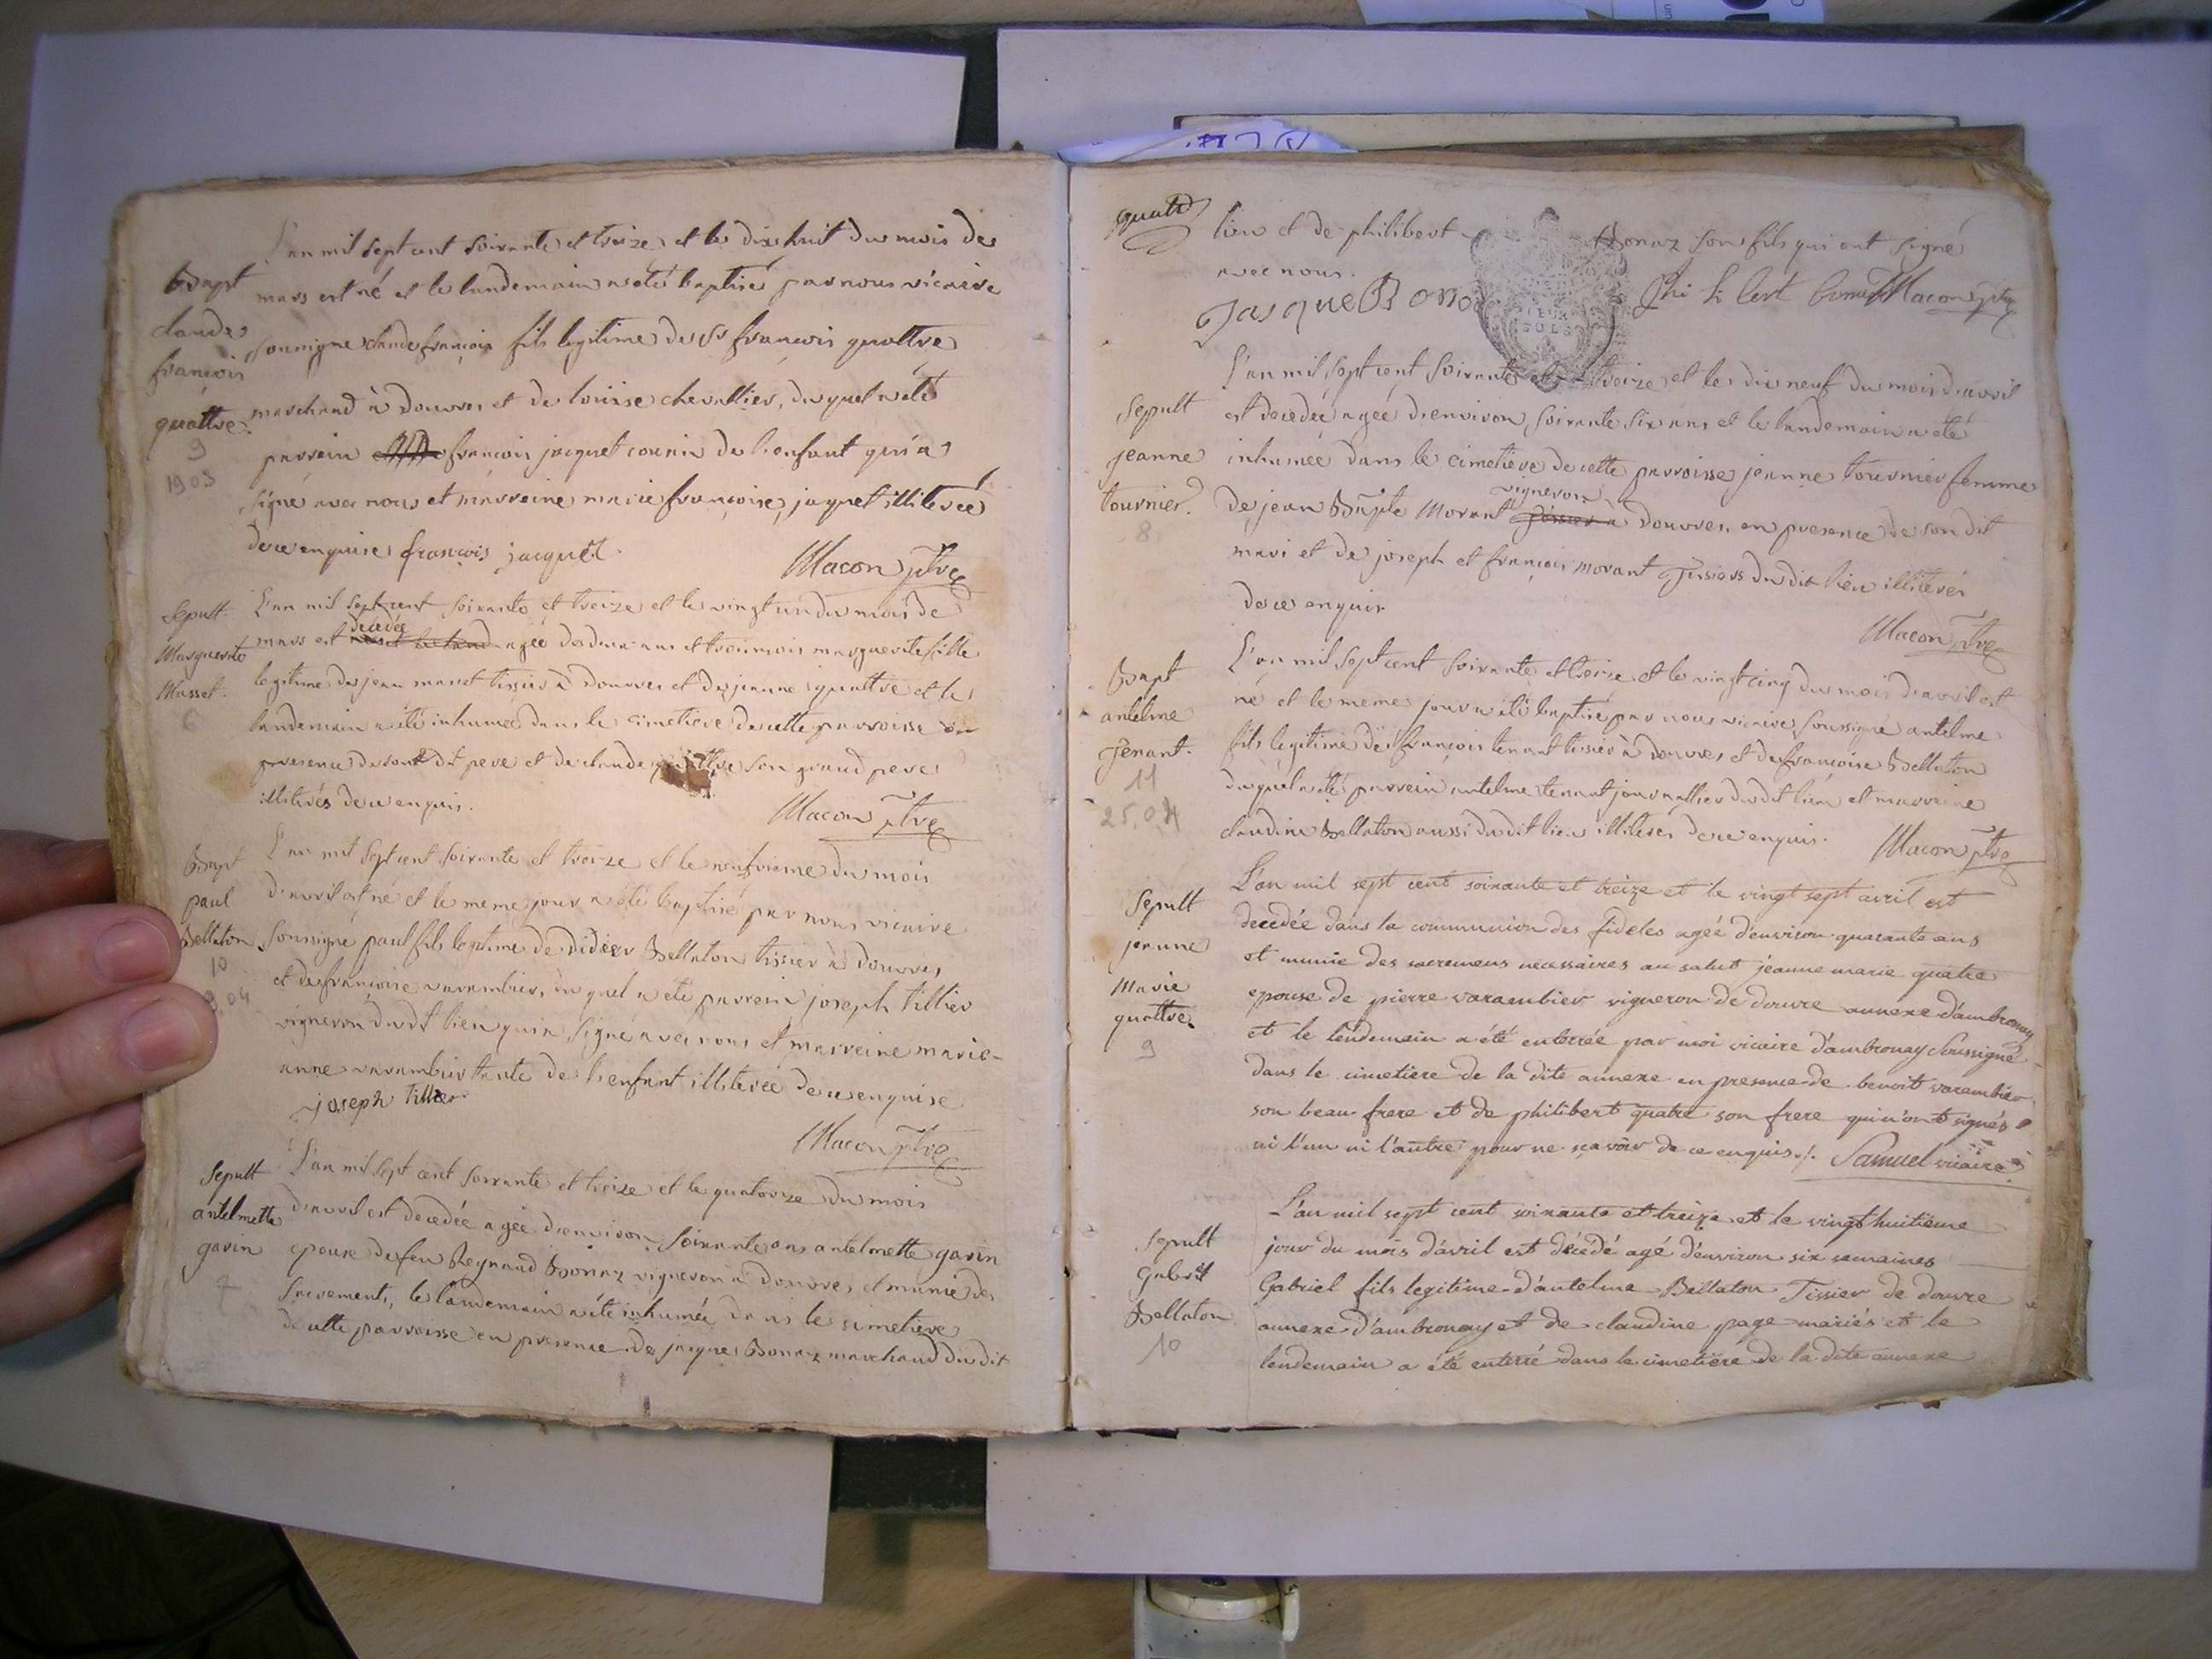 L'an mil sept cent soixante et treize et le dix huit du mois de
Bapt
mars est né et le landemain a eté baptisé par nous vicaire
claude
soussigné claude françois fils legitime de sr françois quattre
françois
quattre.
marchand à douvres et de louise chevallier, du quel a eté
9
1903
parrein françois jacquet cousin de l'enfant qui a
signé avec nous et marreine marie françoise jaquet illiterée
de ce enquise françois jacquet
Macon ptre
Sepult
Marguerite
Musset.
6
L'an mil sept cent soixante et treize et le vingt un du mois de
mars est decedée agée de deux ans et trois mois marguerite fille
legitime de jean musset tissier à douvres et de jeanne quattre et le
landemain a été inhumée dans le cimetiere de cette parroisse en
presence de son dit pere et de claude quattre son grand pere
illiterés de ce enquis.
Macon ptre
Bapt
paul
Bellaton
10
9.04
L'an mil sept cent soixante et treize et le neufvieme du mois
d'avril est né et le meme jour a été baptisé par nous vicaire
soussigné paul fils legitime de didier Bellaton tissier à douvres
et de françoise varambier, du quel a eté parrein joseph tillier
vigneron dudt lieu qui a signé avec nous et marreine marie-
anne varambier tante de l'enfant illiterée de ce enquise
joseph tillier
Macon ptre
Sepult
antelmette
gavin
7
L'an mil sept cent soixante et treize et le quatorze du mois
d'avril est decedée agée d'environ soixante ans antelmette gavin
epouse de feu Reynaud Bonaz vigneron à douvres et munie des
sacrements, le landemain a été inhumée dans le cimetiere
de cette parroisse en presence de jacque Bonaz marchand du dit
quatre
lieu et de philibert Bonaz son fils qui ont signé
avec nous.
Jasque Bonaz
Phi li bert bonaz Macon ptre
Sepult
jeanne
tournier?
8
L'an mil sept cent soixante et treize et le dix neuf du mois d'avril
est decedée agée d'environ soixante six ans et le landemain a été
inhumée dans le cimetiere de cette parroisse jeanne tournier femme
de jean Bapte Morant vigneron à douvres en presence de son dit
mari et de joseph et françois morant Tissiers du dit lieu illiterés
de ce enquis
Macon ptre
Bapt
antelme
Tenant.
11
25.04
L'an mil sept cent soixante et treize et le vingt cinq du mois d'avril est
né et le meme jour a été baptisé par nous vicaire soussigné antelme
fils legitime de françois tenant tissier à douvres et de françoise Bellaton
du quel a été parrein antelme tenant journallier du dit lieu et marreine
claudine Bellaton aussi du dit lieu illiterés de ce enquis.
Macon ptre
Sepult
jeanne
Marie
quattre
9
L'an mil sept cent soixante et treize et le vingt sept avril est
decedée dans la communion des fideles agée d'environ quarante ans
et munie des sacremens necessaires au salut jeanne marie quatre
epouse de pierre varambier vigneron de douvre annexe d'ambronay
et le lendemain a été enterrée par moi vicaire d'ambronay soussigné
dans le cimetiere de la dite annexe en presence de benoit varambier
son beau frere et de philibert quatre son frere qui n'ont signés
ni l'un ni l'autre pour ne sçavoir de ce enquis./. Samuel vicaire
Sepult
Gabriel
Bellaton
10
L'an mil sept cent soixante et treize et le vingt huitieme
jour du mois d'avril est décédé agé d'environ six semaines
Gabriel fils legitime d'antelme Bellaton Tissier de douvre
annexe d'ambronay et de claudine page mariés et le
lendemain a été enterré dans le cimetiere de la dite annexe